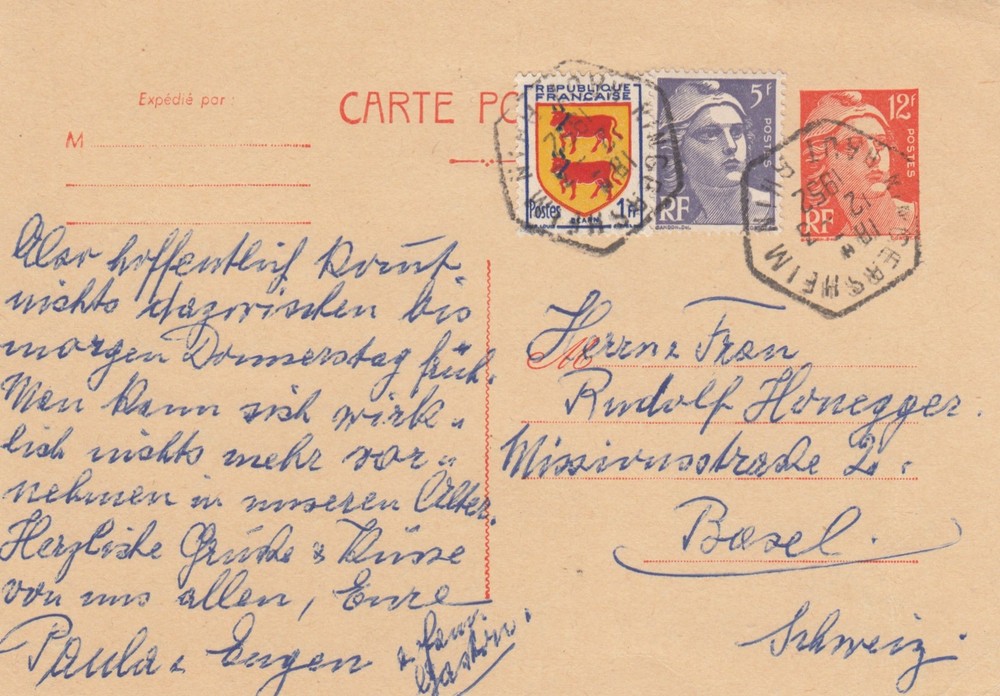 Expédié par :
CARTE PO
M
RÉPUBLIQUE
FRANÇAISE
Postes
1F
BÉARN
5F
POSTES
RF
GANDON-DEL
12F
POSTES
RF
INGERSHEIM
18 H
INGERSHEIM
18 H
12
1952
HAUT RHIN
Aber hoffentlich kommt
nichts dazwischen bis
morgen Donnerstag früh.
Man kann sich wirk-
lich nichts mehr vor-
nehmen in unserem Alter.
Herzliche Grüsse & Küsse
von uns allen, Eure
Paula & Eugen
Gaston.
M
Herrn & Frau
Rudolf Honegger.
Missionsstrasse 2.
Basel.
Schweiz.